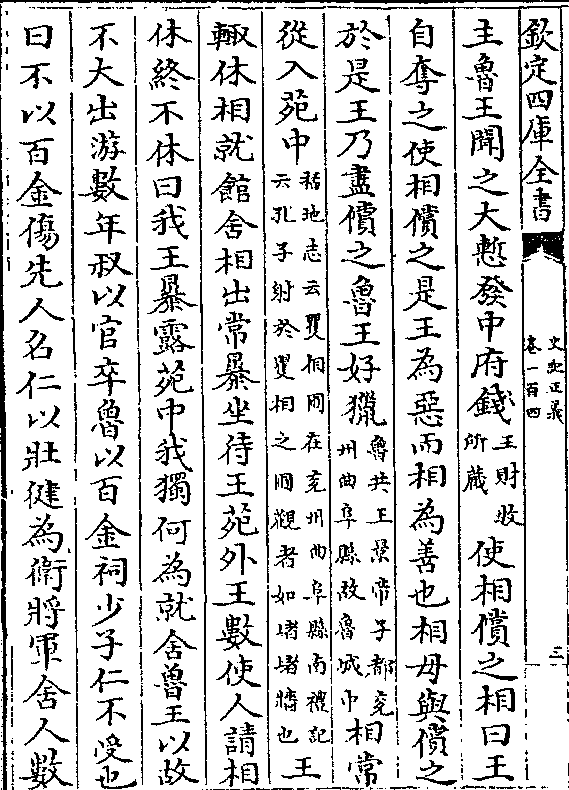 欽定四庫全書
史記正義
卷一百四
三
主魯王聞之大慙發中府錢王財收所藏使相償之相曰王
自奪之使相償之是王為惡而相為善也相毋與償之
於是王乃盡償之魯王好獵魯共王景帝子都兗州曲阜縣故魯城中相常
從入苑中括地志云矍相圃在兗州曲阜縣南禮記云孔子射於矍相之圃觀者如堵堵牆也王
輙休相就館舍相出常暴坐待王苑外王數使人請相
休終不休曰我王暴露苑中我獨何為就舍魯王以故
不大出游數年叔以官卒魯以百金祠少子仁不受也
曰不以百金傷先人名仁以壯健為衛將軍舍人數